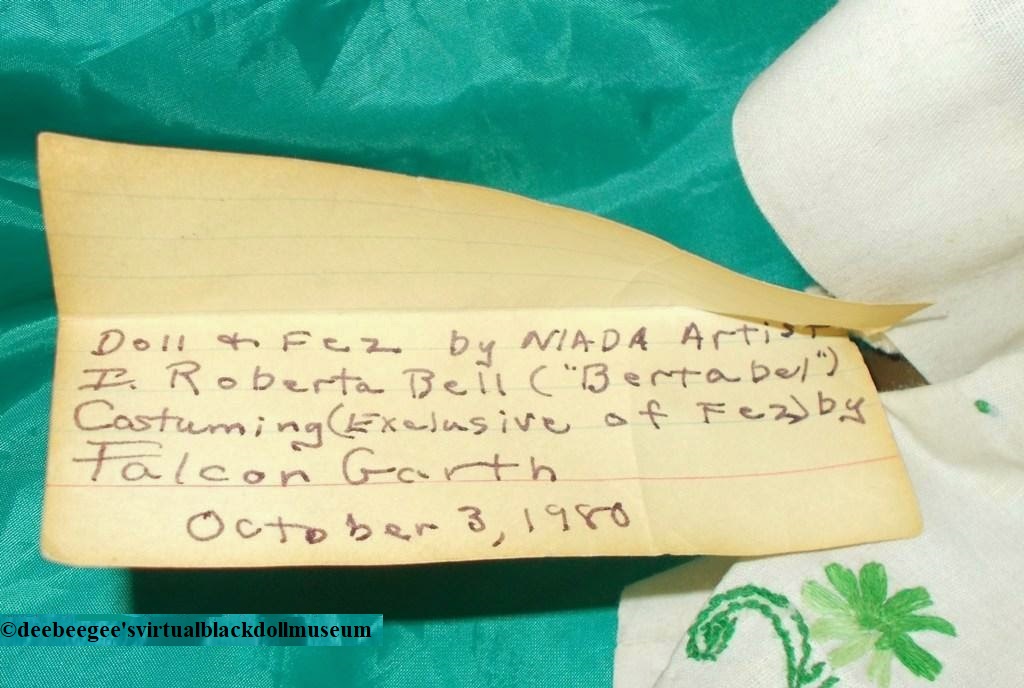 Doll & Fez by NIADA Artist
I. Roberta Bell ("Bertabel")
Costuming (Exclusive of Fez) by
Falcon Garth
October 3, 1980
©deebeegee'svirtualblackdollmuseum